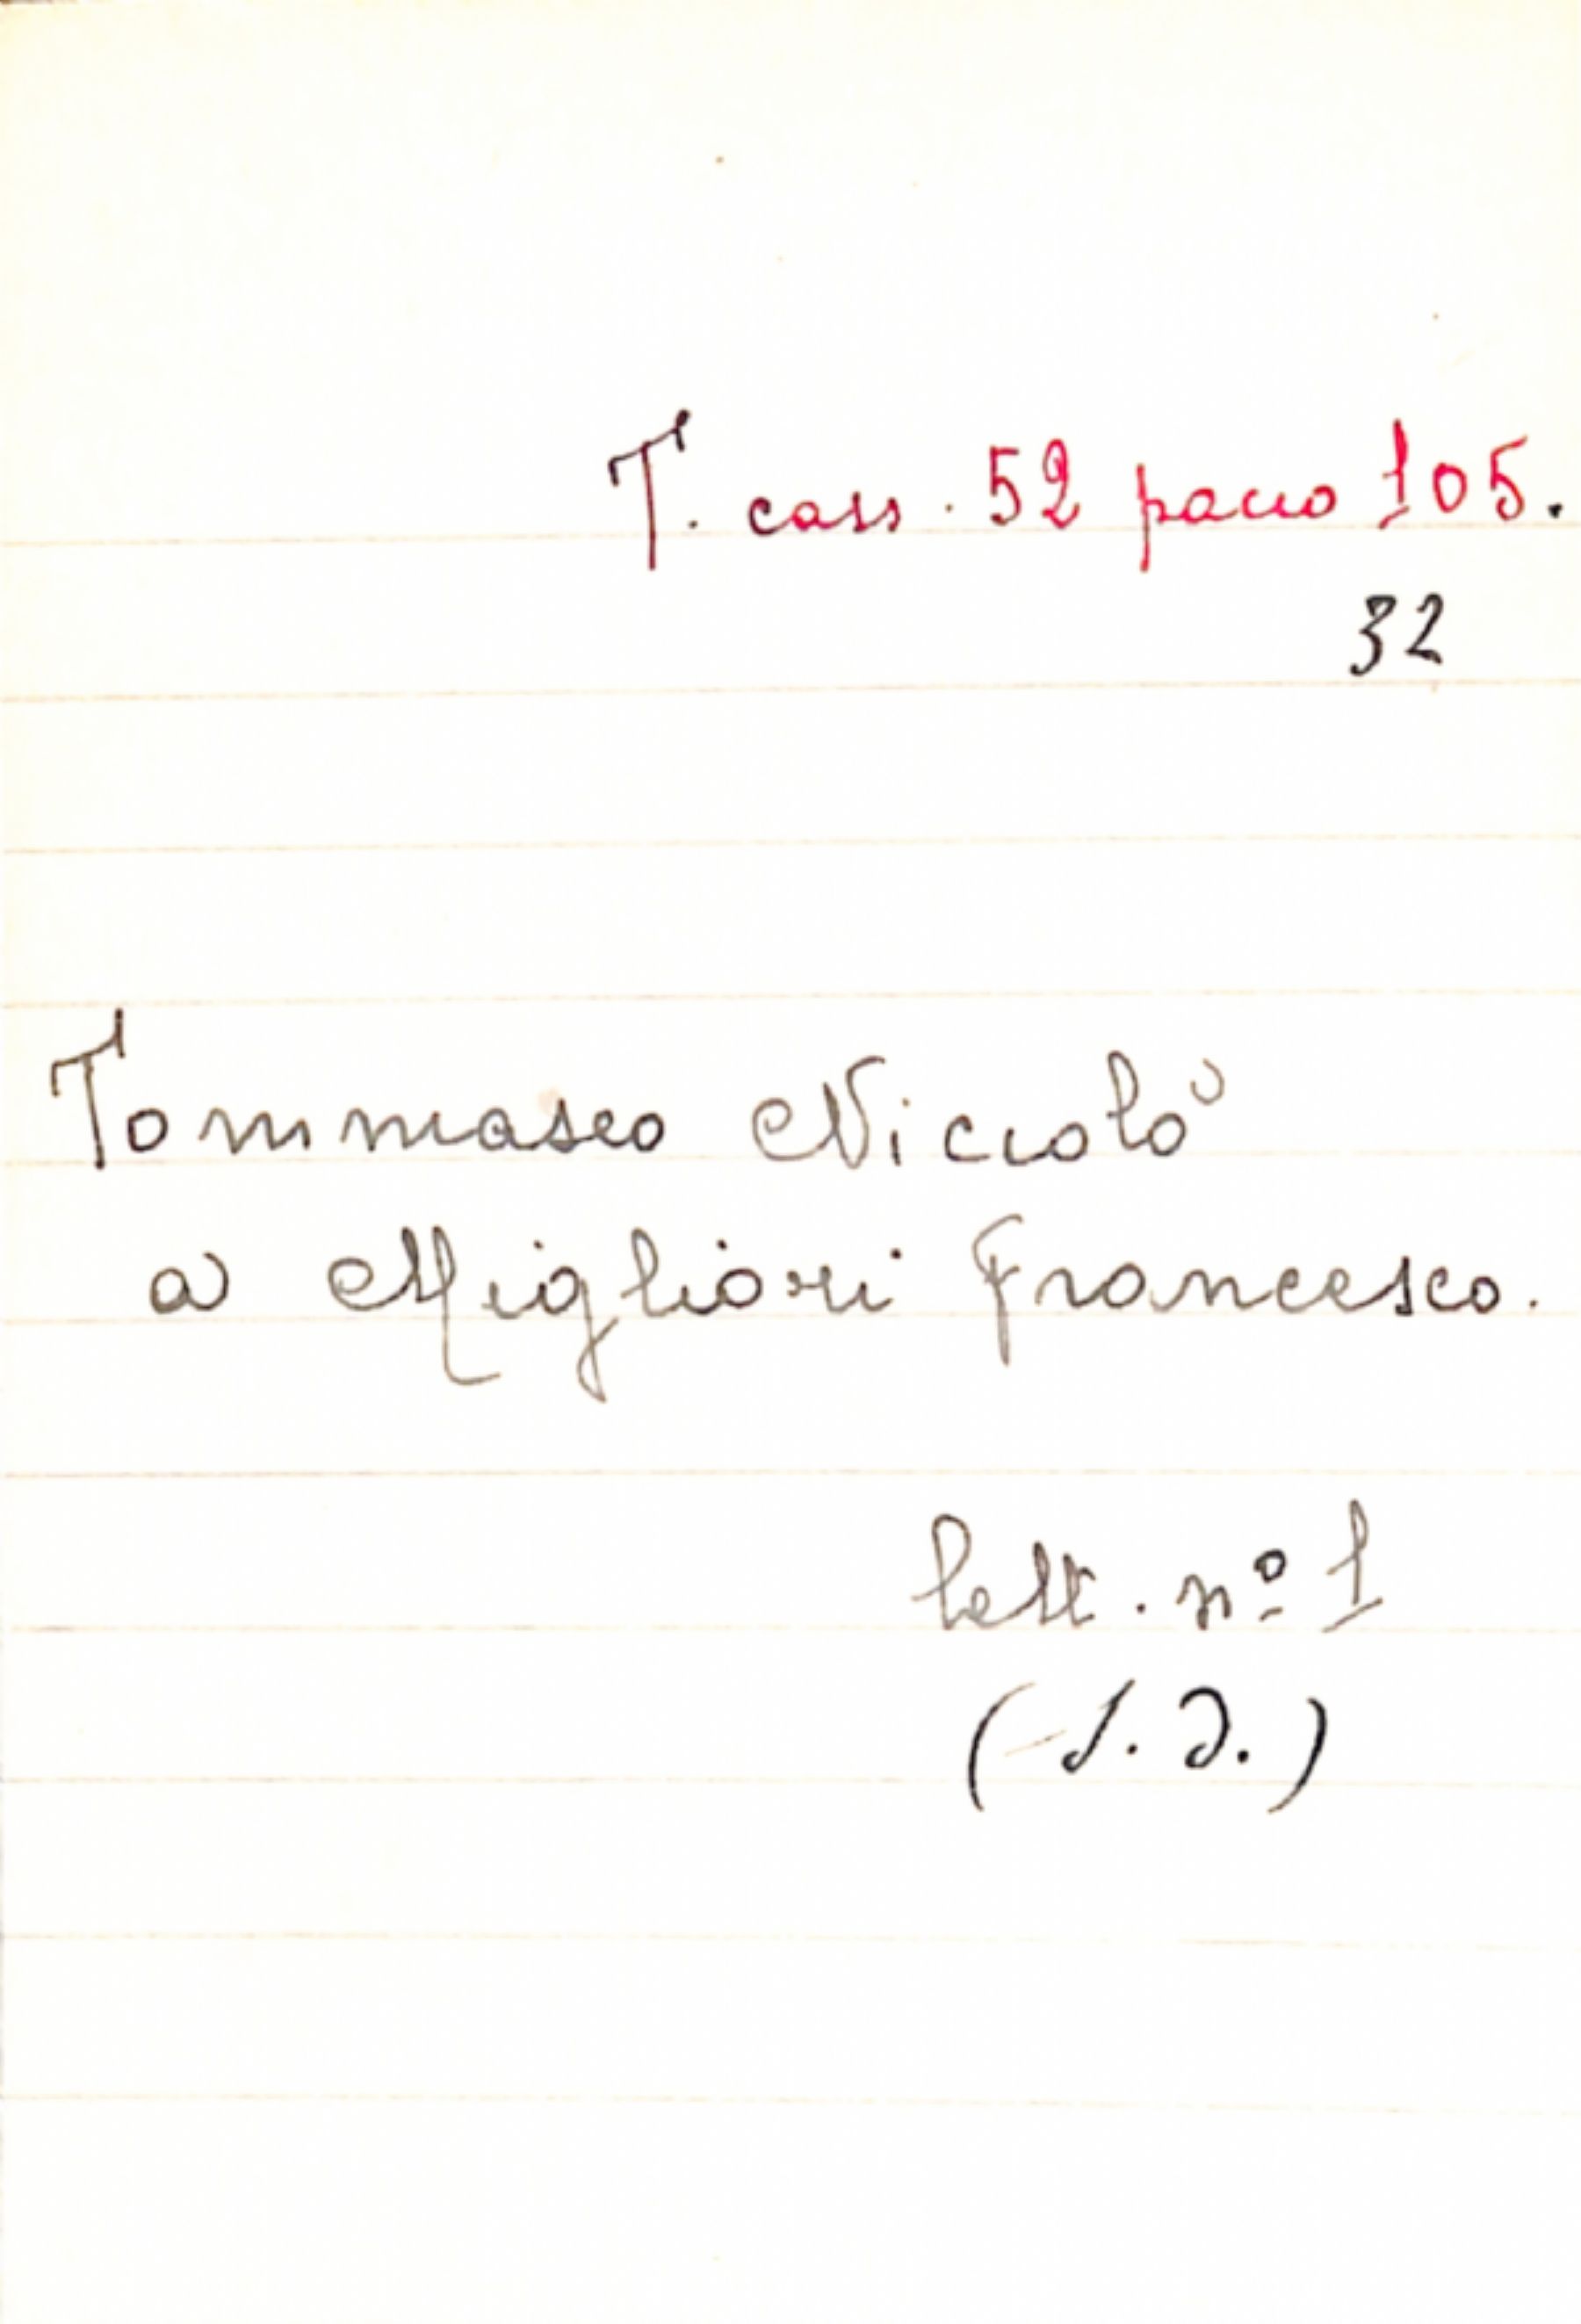 T. cass. 52 pacco 105.
32
Tommaseo Niccolò
a Migliori Francesco.
lett. nº 1
(s. d.)